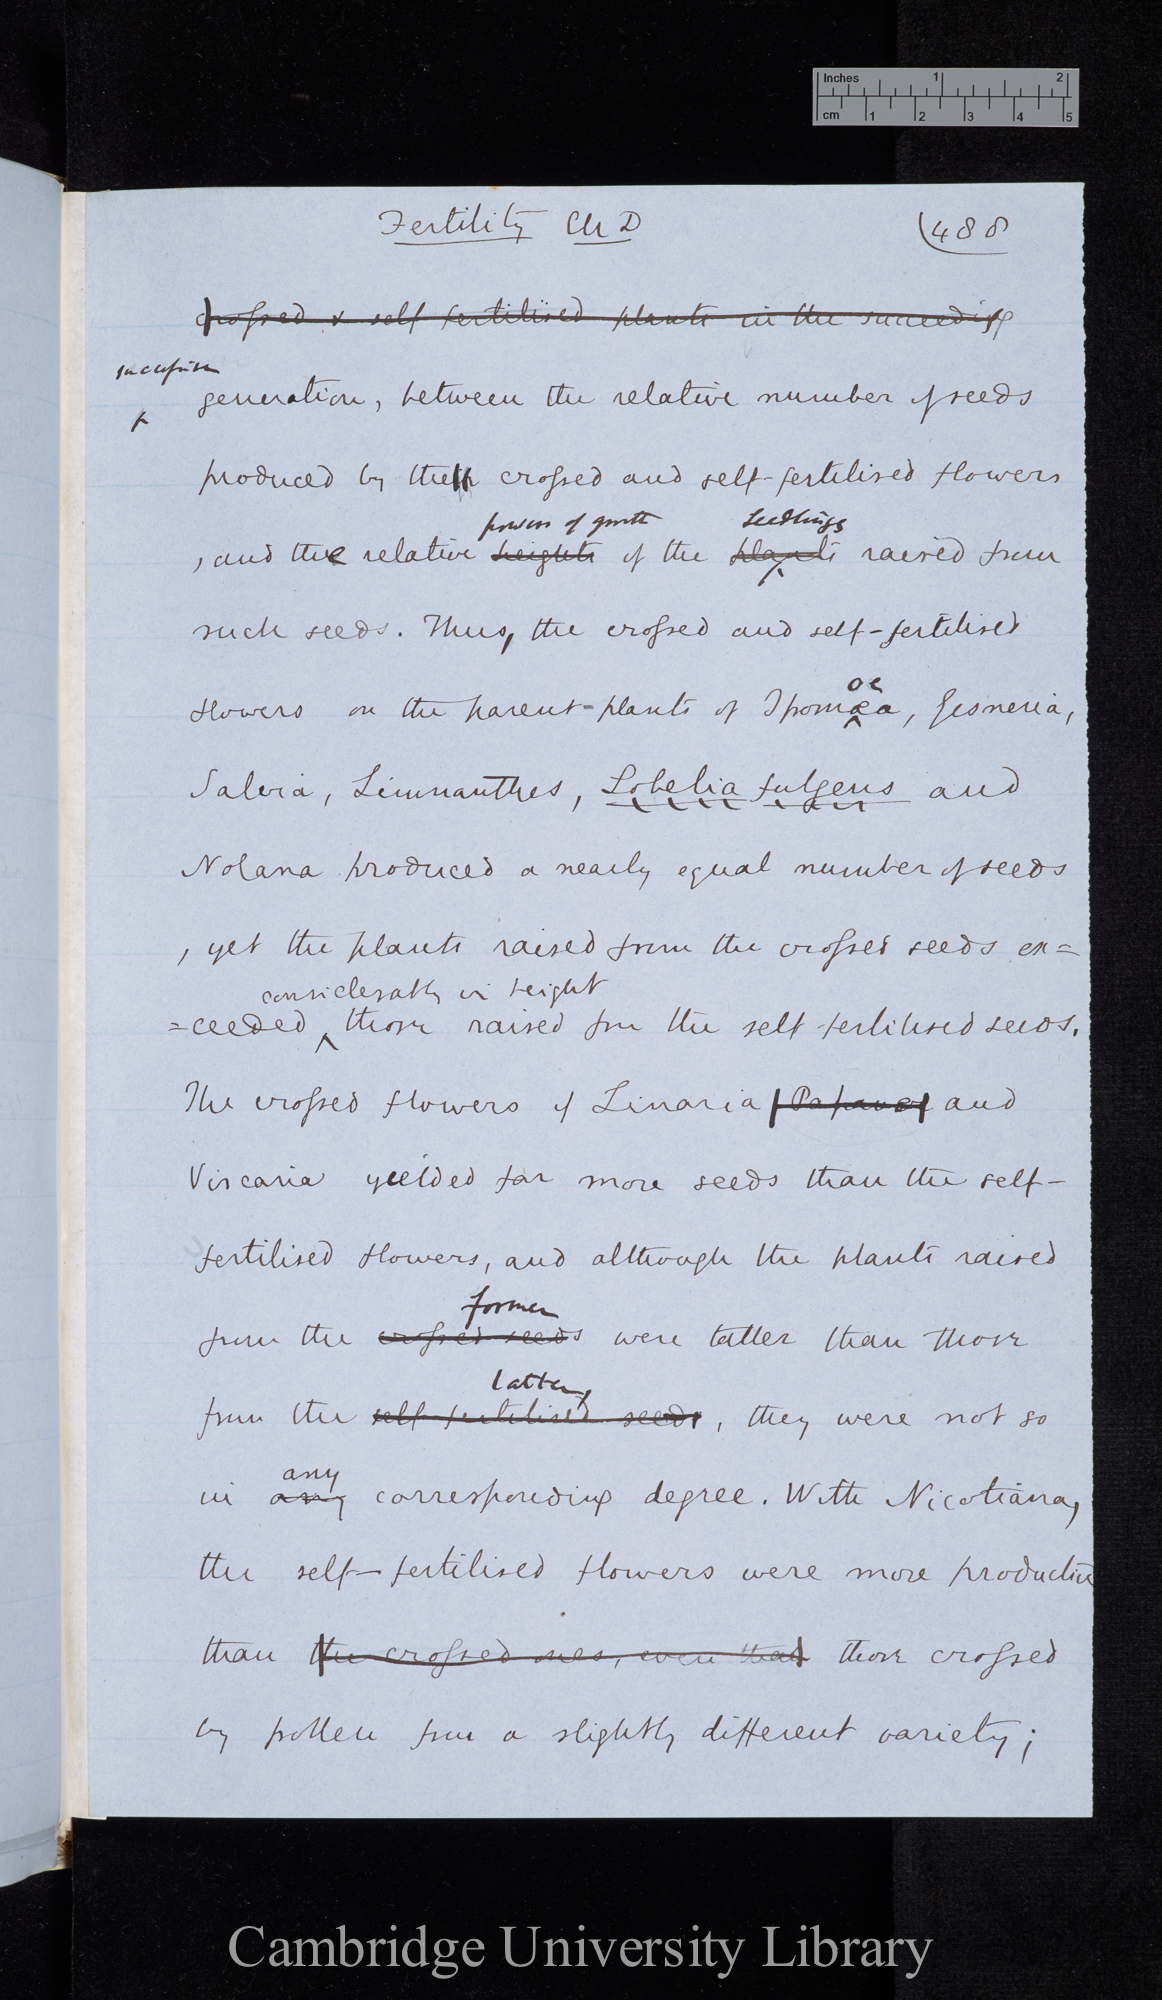 Inches 1 2
cm 1 2 3 4 5
Fertility Ch D (488
crossed & self fertilised plants in the succeeding
successive
generation, between the relative number of seeds
produced by the crossed and self-fertilised flowers
powers of growth seedlings
, and the relative heights of the plants raised from
such seeds. Thus, the crossed and self-fertilised
oe
flowers on the parent-plants of Ipomæa, Gesneria,
Salvia, Limnanthes, Lobelia fulgens and
Nolana produced a nearly equal number of seeds
, yet the plants raised from the crossed seeds ex=
considerably in height
=ceeded ‸ those raised from the self fertilised seeds.
The crossed flowers of Linaria Papaver and
Viscaria yielded far more seeds than the self-
fertilised flowers, and although the plants raised
former
from the crossed seeds were taller than those
latter,
from the self-fertilised seeds, they were not so
any
in any corresponding degree. With Nicotiana,
the self-fertilised flowers were more productive
than the crossed ones, even than those crossed
by pollen from a slightly different variety;
Cambridge University Library